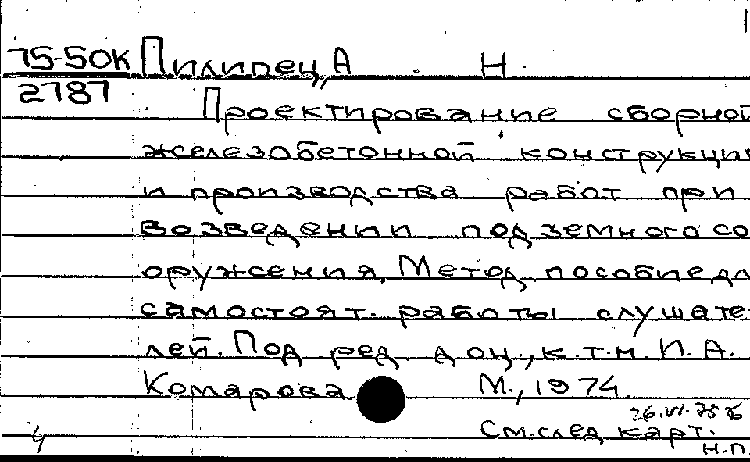 75-50К Пилипец, А. Н.
2787
Проектирование сборной
железобетонной конструкции
и производства работ при
возведении подземного со
оружения. Метод. пособие дл
самостоят. работы слушате
лей. Под ред. доц., к.т.н. И.А.
Комарова М., 1974.
См. след. карт.
Н.П
4